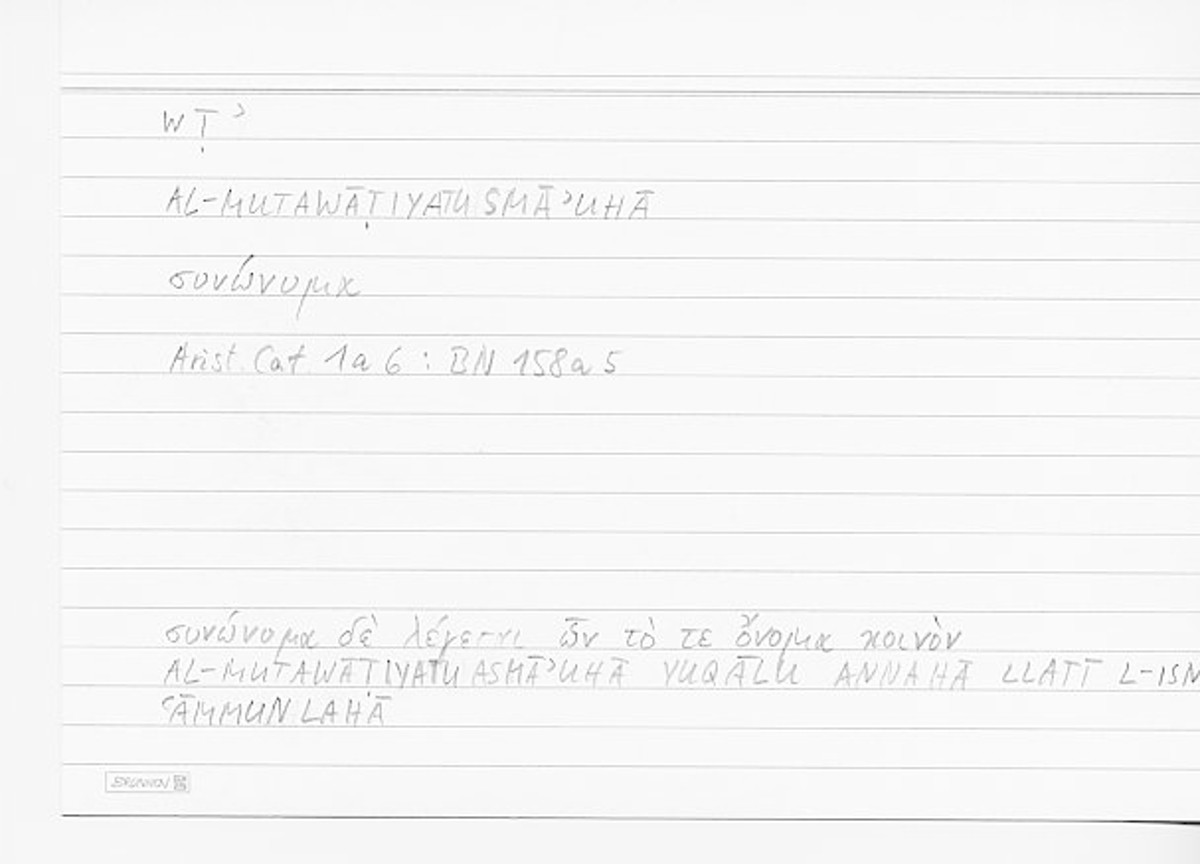 WṬʾ
AL-MUTAWĀṬIYATU SMĀʾUHĀ
συνώνυμα
Arist. Cat. 1a6 : BN 158a5
συνώνυμα δὲ λέγεται ὧν τό τε ὄνομα κοινὸν
AL-MUTAWĀṬIYATU ASMĀʾUHĀ YUQĀLU ANNAHĀ LLATĪ L-ISM
ʿĀMMUN LAHĀ
BRUNNEN